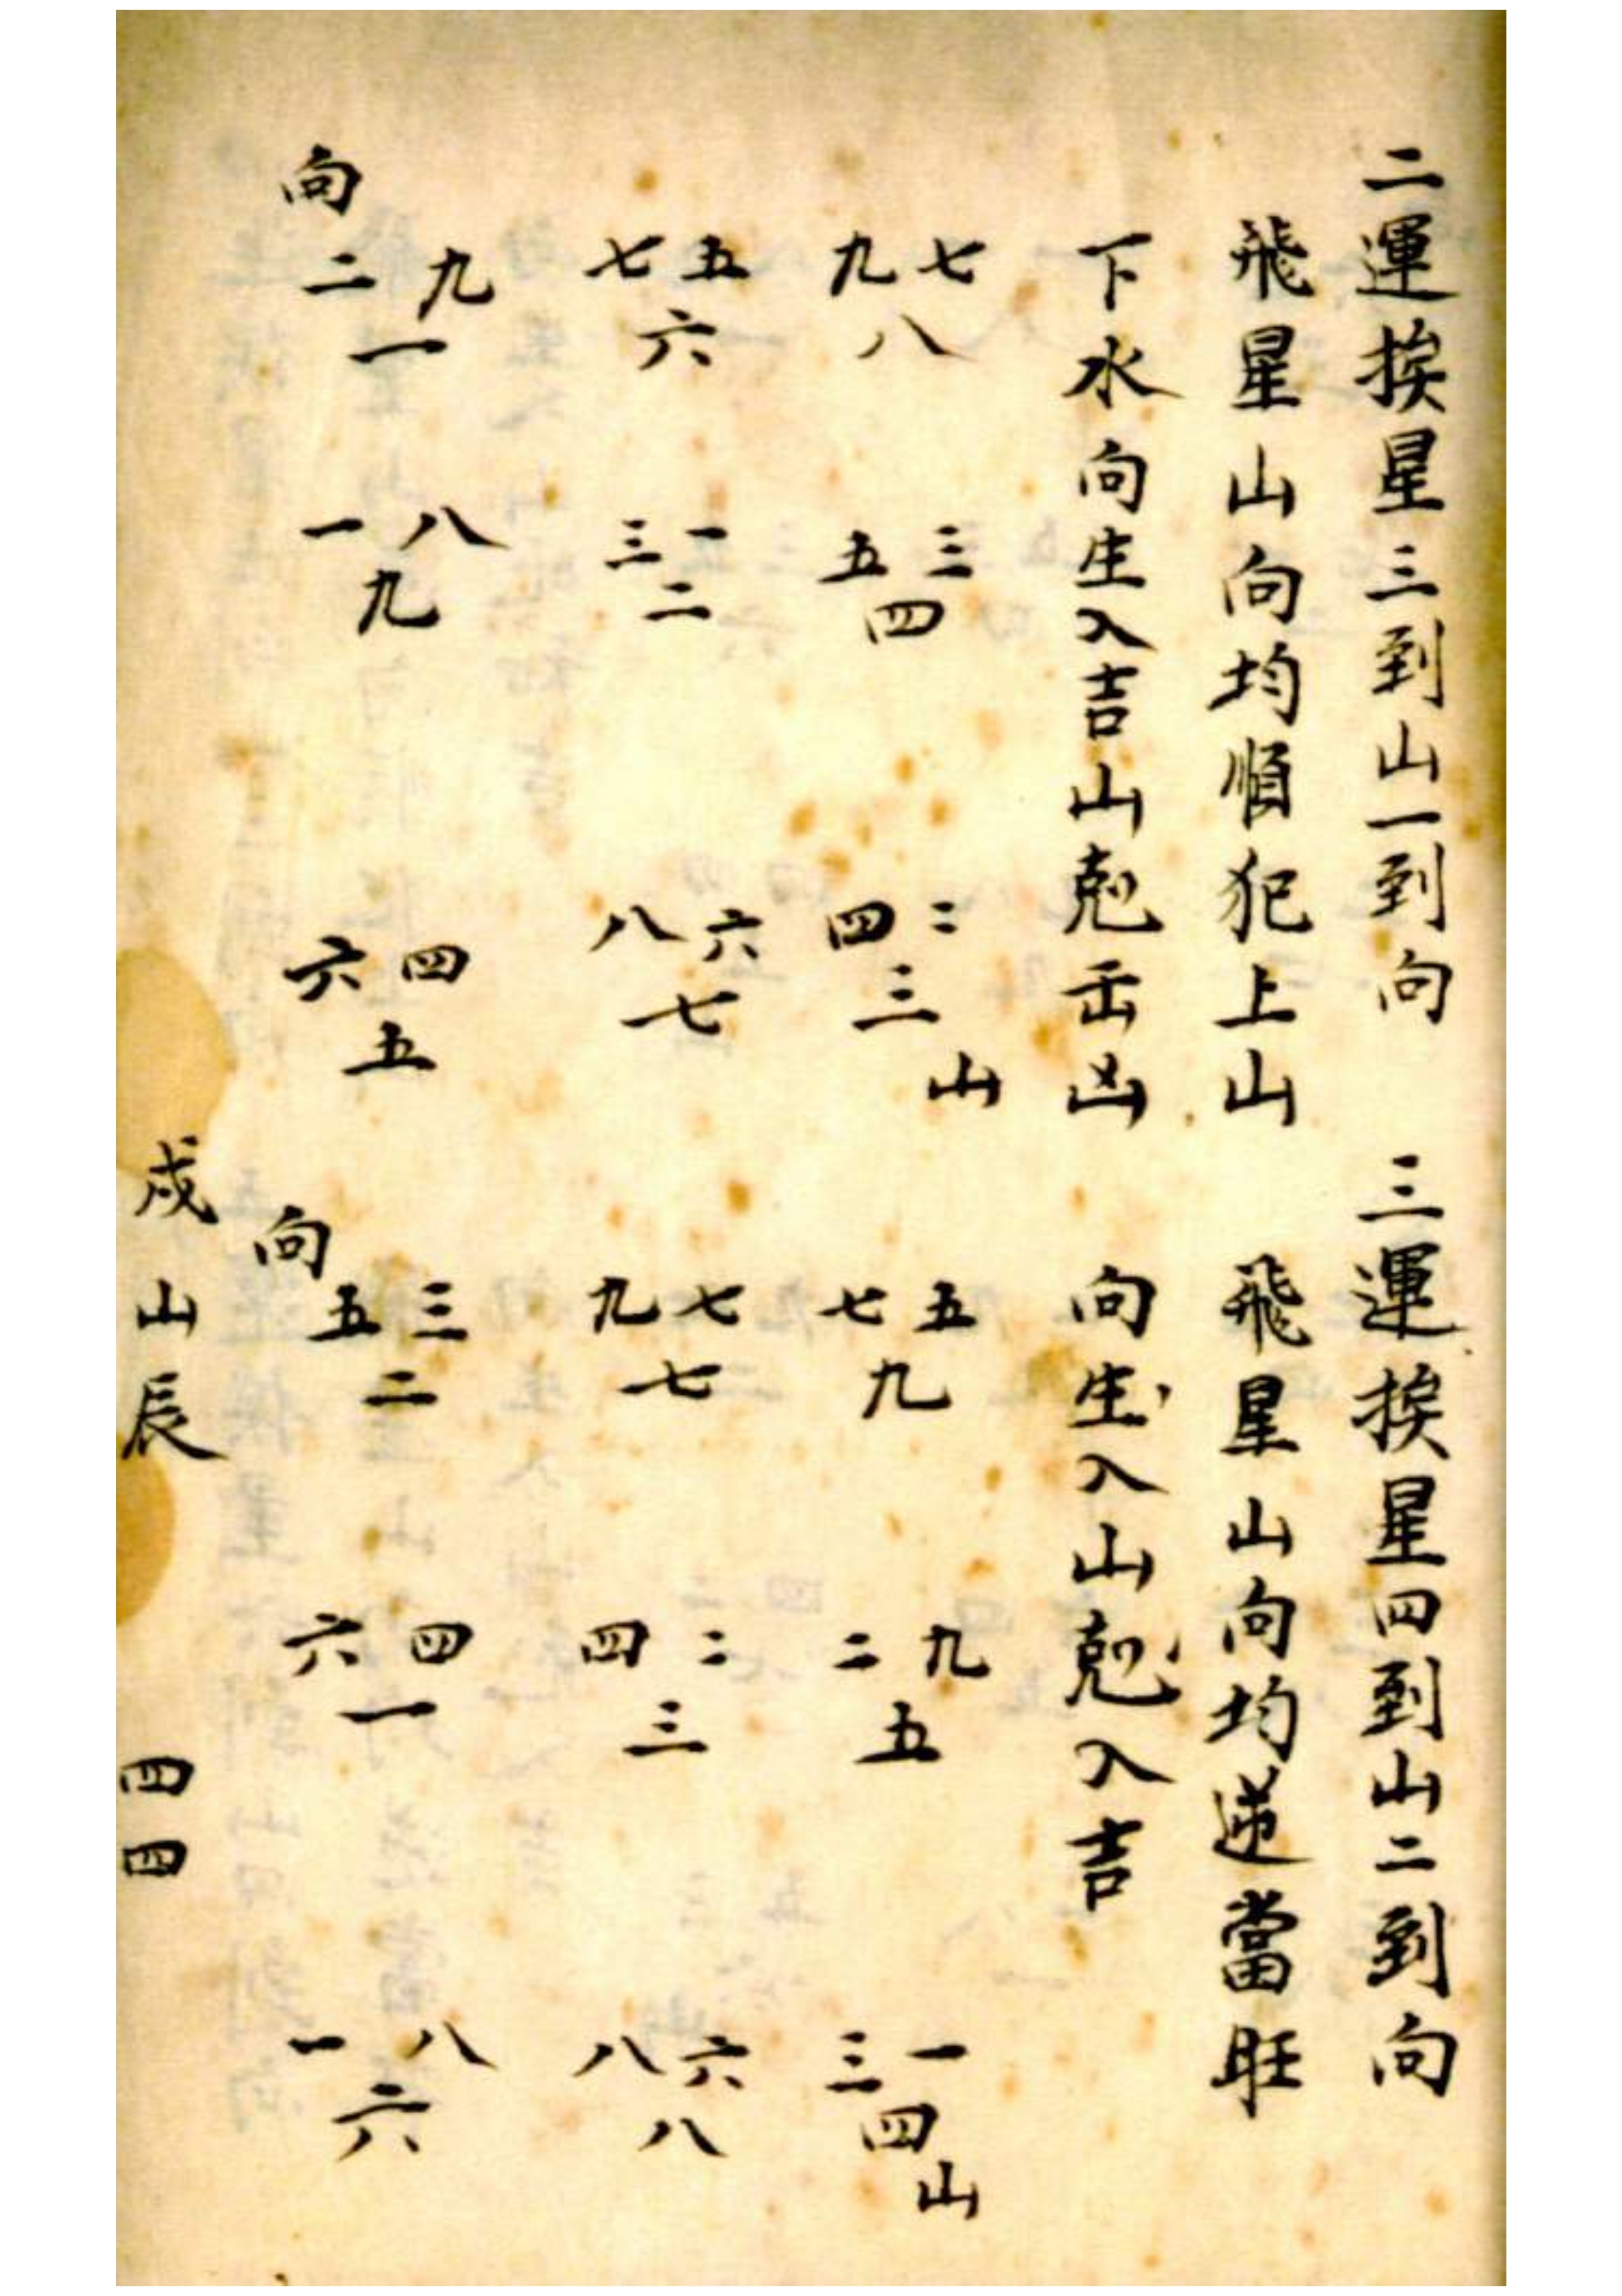 二運挨星三到山一到向
飛星山向均順犯上山
下水向生入吉山剋出凶
七九 三五 二四
八 四 三
山
五七 一三 六八
六 二 七
向
九二 八一 四六
一 九 五
三運挨星四到山二到向
飛星山向均逆當旺
向生入山剋入吉
五七 九二 一三
九 五 四
山
七九 二四 六八
七 三 八
向
三五 四六 八一
二 一 六
戌山辰 四四